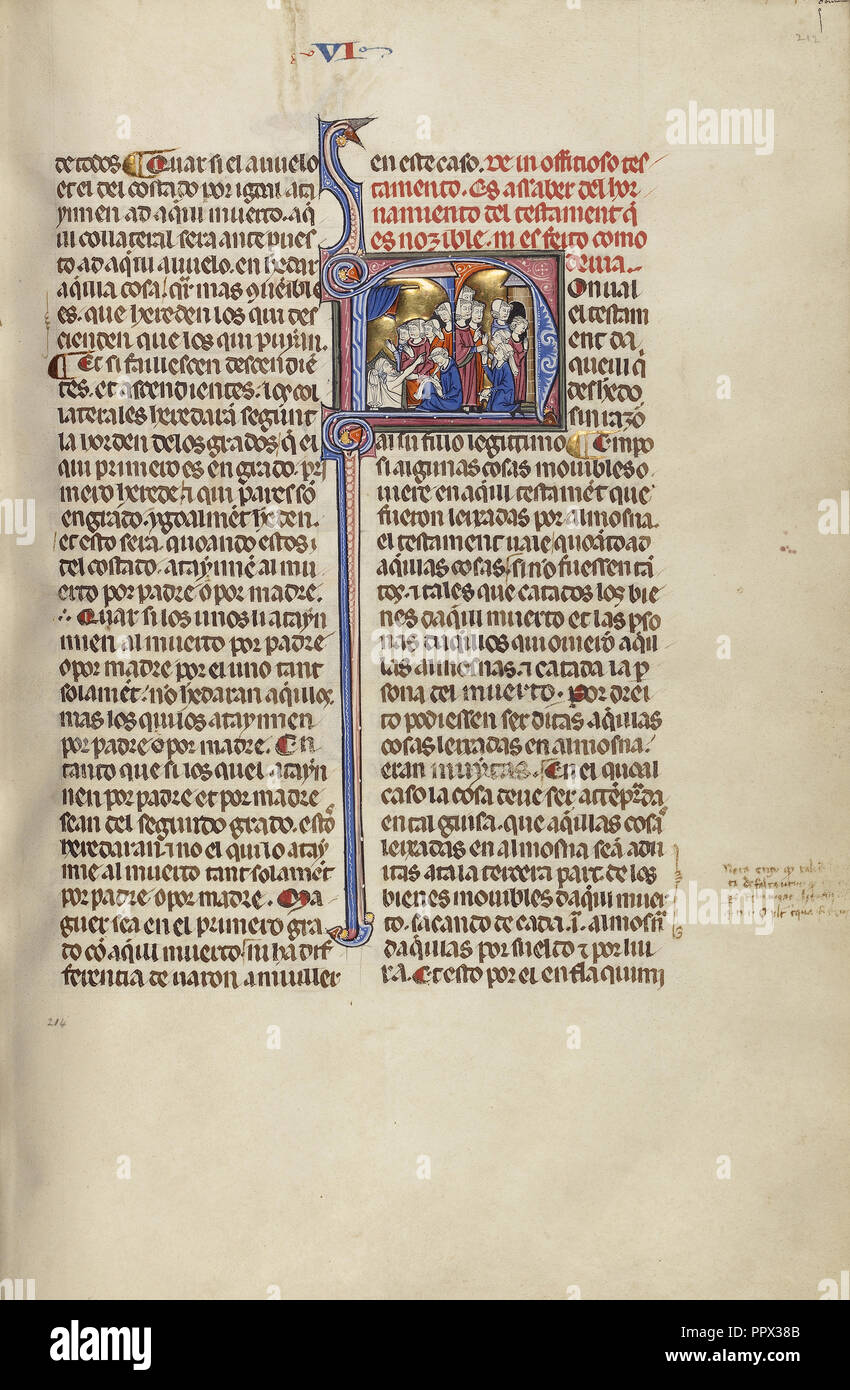 VI
212
de todos Quar si el auuelo
et el del costado por igoal ata
ynnen ad aq̄ul muerto. aq̄
ill collateral sera ante pues
to ad aq̄ul auuelo. en heδar
aq̄lla cosa.
es. que hereden los qui des
cienden que los qui puyan.
Et si fallescen descendiē
tes. et ascendientes. los col
laterales heredarā segūnt
la uorden de los grados q̄ el
qui primero es en grado. pri
mero herede ⁊ qui pares sō
en grado. ygoalmēt heδen.
et esto sera. quoando estos
del costado. ataynnē al mu
erto por padre o por madre.
Quar si los unos li atayn
nen al muerto por padre
o por madre por el uno tant
solamēt no heδaran aq̄llos.
mas los qui los ataynnen
por padre o por madre. En
tanto que si los quel atayn
nen por padre et por madre
sean del segundo grado. estō
heredaran ⁊ no el qui lo atay
nne al muerto tant solamēt
por padre o por madre. Ma
guer sea en el primero gra
do cō aq̄ul muerto. ni ha dif
ferencia de uaron a muller
en este caso. De in officioso tes
tamento. Es assaber del hor
namiento del testament q̄
es nozible. ni es feito como
deuia.
Onual
el testam
ent da
quell q̄
desheδo
sin razō
al su fillo legittimo Empo
si algunas cosas mouibles o
uiere en aq̄ul testamēt que
fueron lexadas por almosna.
el testament uale quoāto ad
aq̄llas cosas si no fuessen tā
tos. ⁊ tales que catados los bie
nes daq̄ul muerto et las pso
nas daq̄llos qui ouierō aq̄l
las almosnas. ⁊ catada la p
sona del muerto. Por drei
to podiessen ser ditas aq̄llas
cosas lexadas en almosna.
eran muytas. En el quoal
caso la cosa deue ser atēp̄rda
en tal guisa. que aq̄llas cosas
lexadas en almosna seā adu
itas ata la tercera part de los
bienes mouibles daq̄ul muer
to. sacando de cada .i. almosn̄
daq̄llas por suelto ⁊ por liu
ra. Et esto por el en fla quimi
214
alamy
Image ID: PPX38B
www.alamy.com